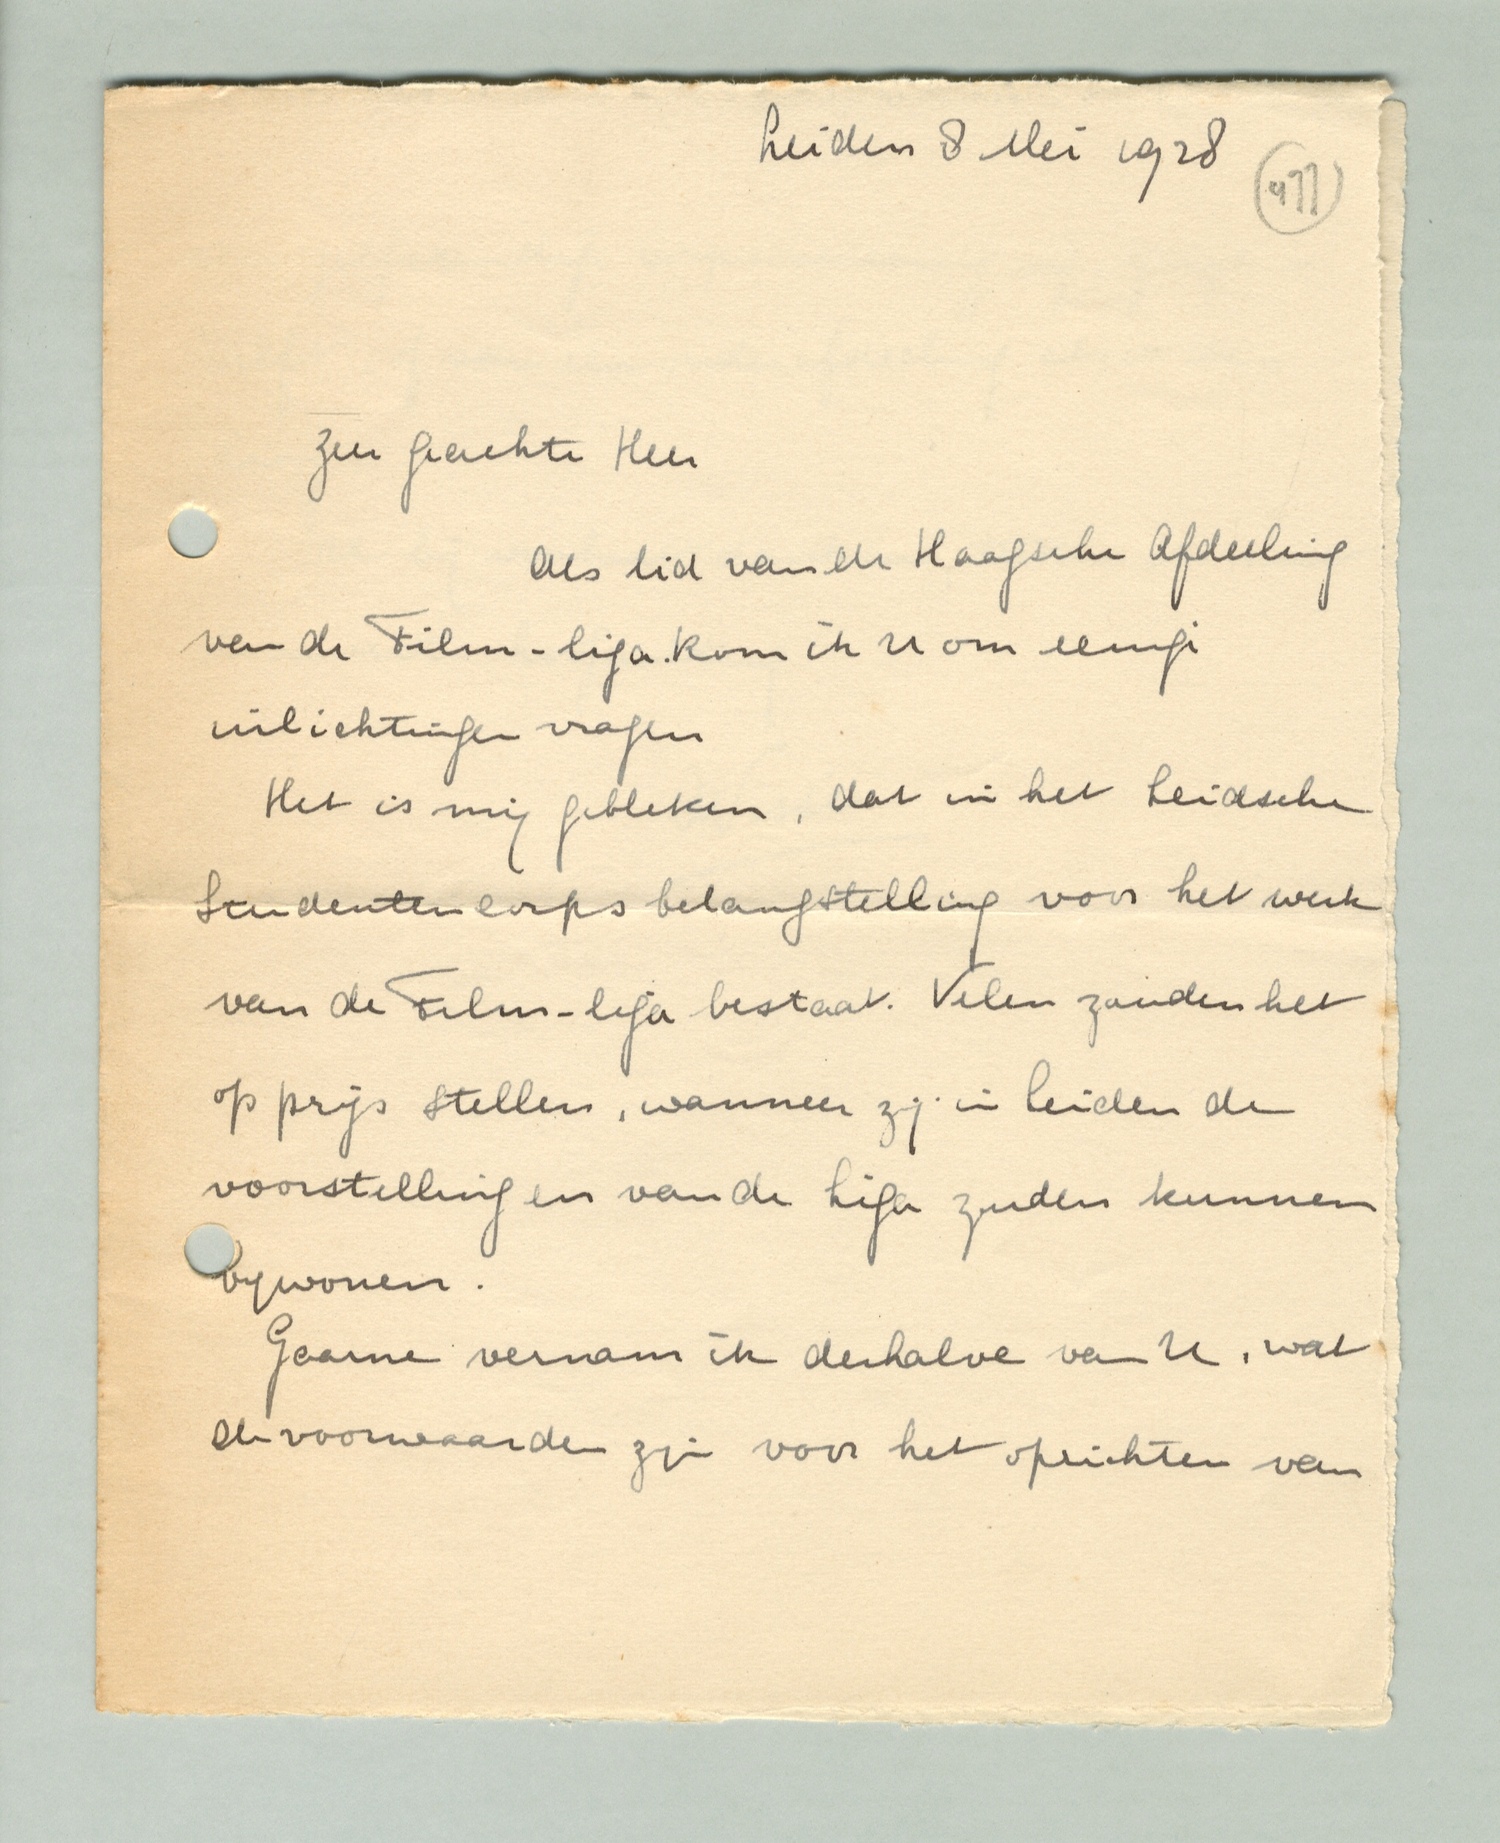 Leiden 8 Mei 1928
477
Zeer geachte Heer
Als lid van de Haagsche Afdeeling
van de Film-liga kom ik U om eenige
inlichtingen vragen
Het is mij gebleken, dat in het Leidsche
Studentencorps belangstelling voor het werk
van de Film-liga bestaat. Velen zouden het
op prijs stellen, wanneer zij in Leiden de
voorstellingen van de Liga zuden kunnen
bijwonen.
Gaarne vernam ik derhalve van U, wat
de voorwaarden zijn voor het oprichten van